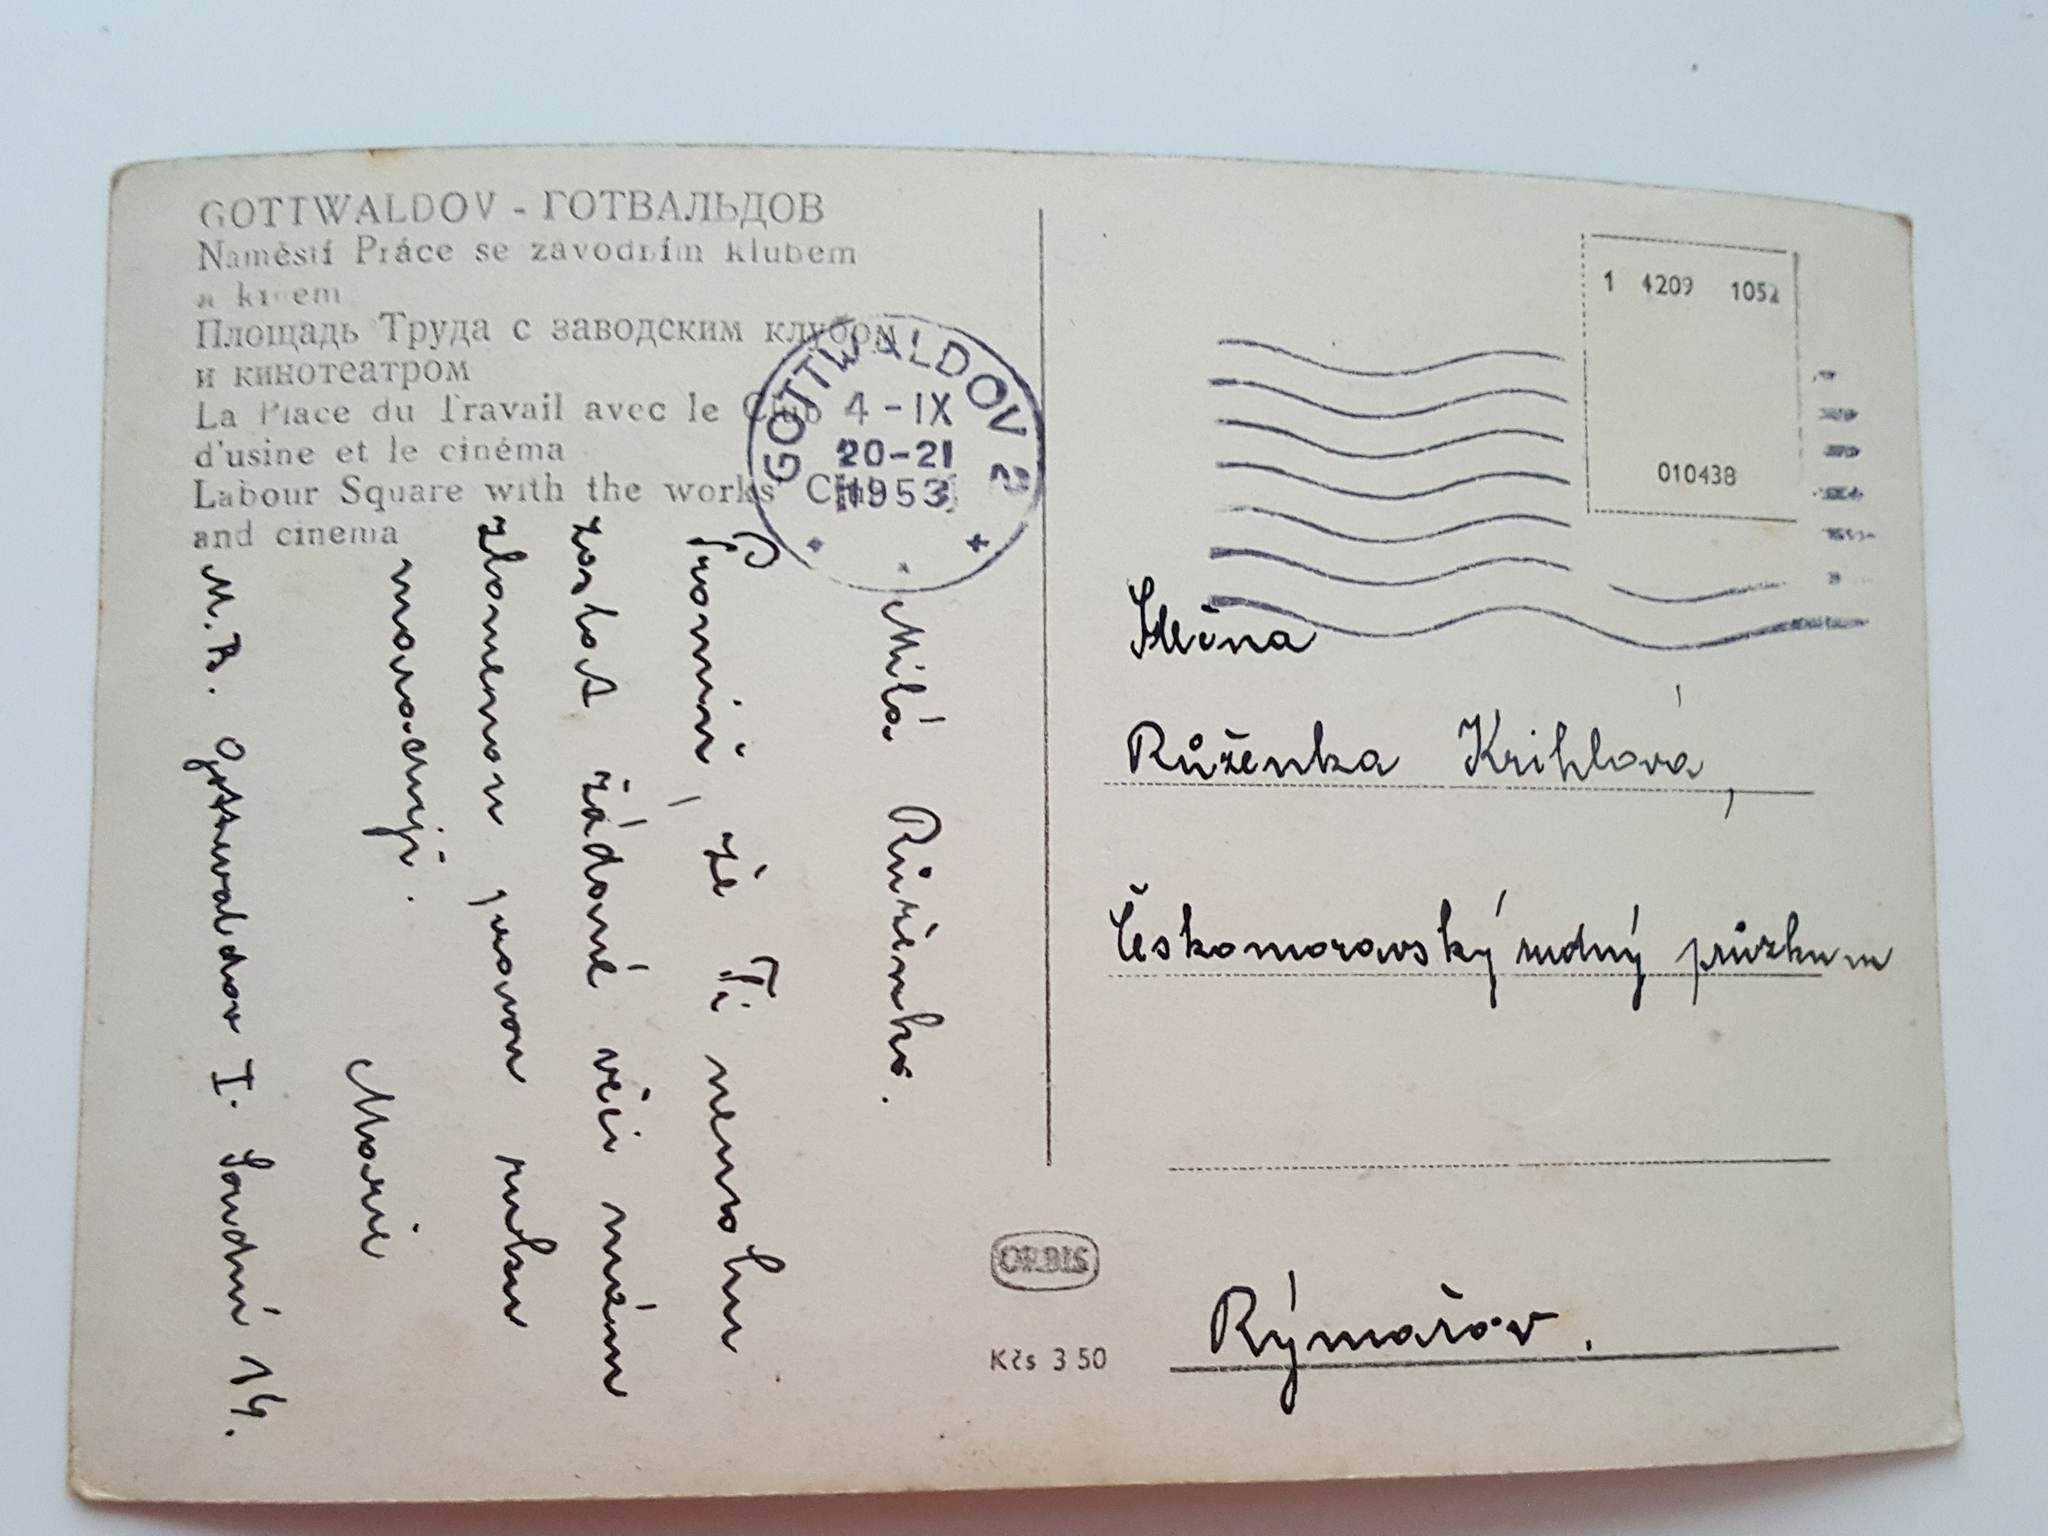 GOTTWALDOV - ГОТВАЛЬДОВ
Náměstí Práce se závodním klubem
a kinem
Площадь Труда с заводским клубом
и кинотеатром
La Place du Travail avec le Club
d'usine et le cinéma
Labour Square with the works' Club
and cinema
GOTTWALDOV 2
4 - IX
20-21
1953
1 4209 1052
010438
Milá Růženko.
Promiň, že Ti nemohu
zaslat žádané věci mám
zlomenou pravou ruku
maroduji.
Marie
M. B. Gottwaldov I. Soudní 14.
Slečna
Růženka Krihlová,
Českomoravský rudný průzkum
Rýmařov.
ORBIS
Kčs 3 50